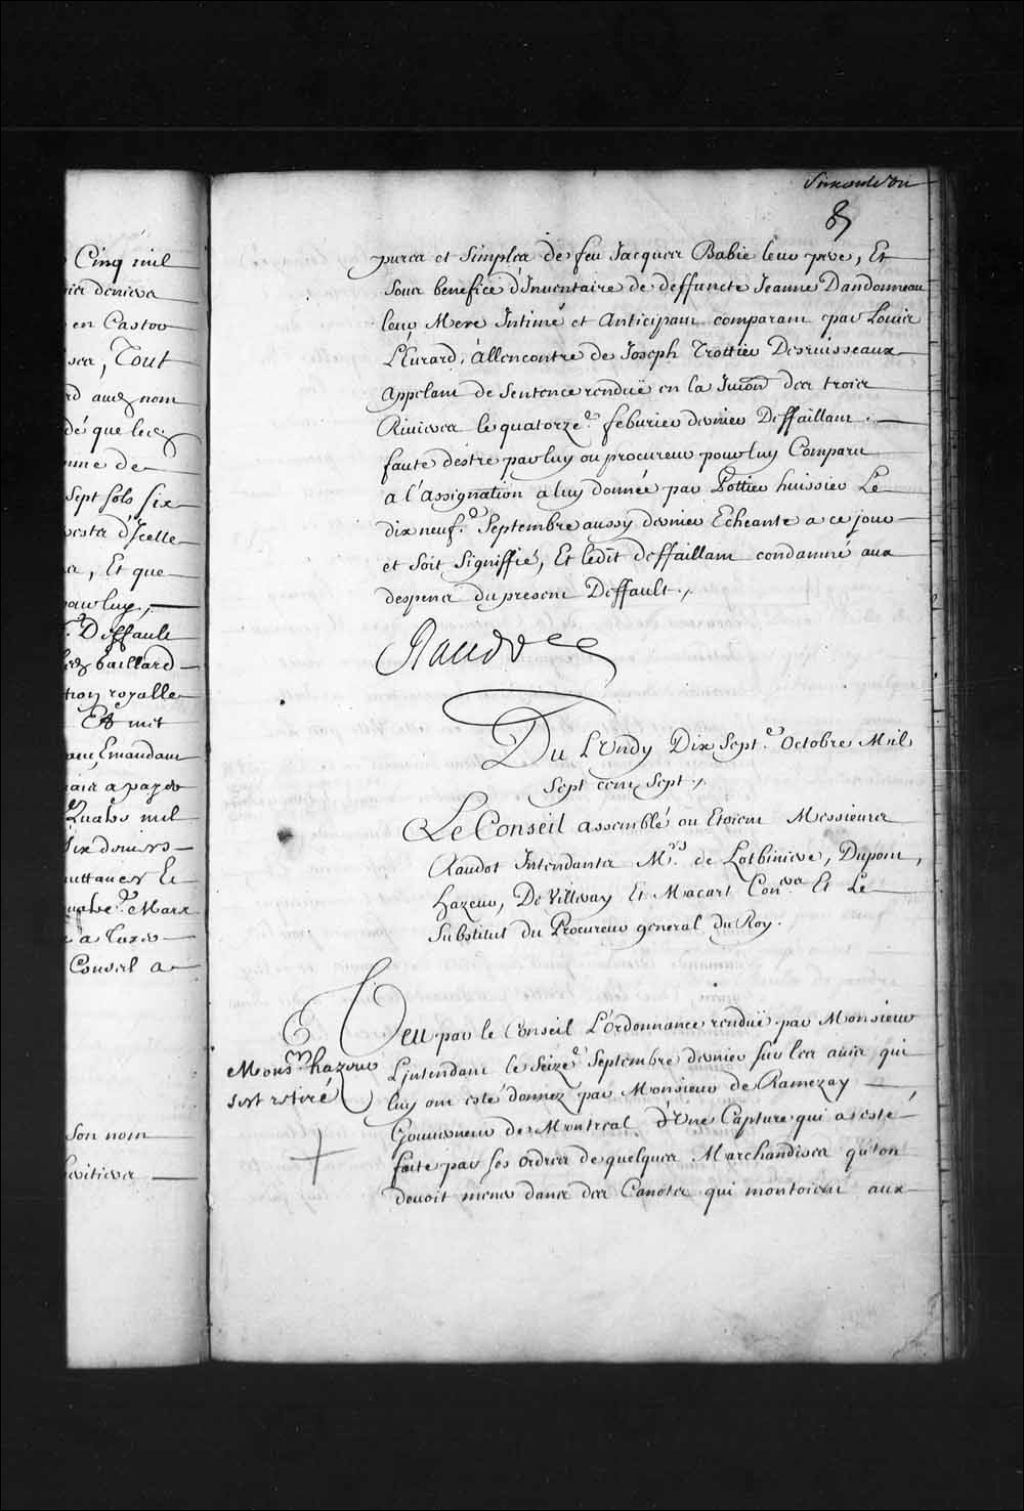 Cinq mil
en Castor
Tout
nom
dé que les
sept sols six
d'Icelle
Et que
par luy,
Deffault
Gaillard
royalle
Et met
Emandant
a payer
Quatre mil
six deniers
Et
Marx
Conseil a
Son nom
87
pures et simples de feu Jacques Babie leur pere, Et
sous benefice d'Inuentaire de deffuncte Jeanne Dandonneau
leur Mere Intimé et Anticipant comparant par Louis
L'Eurard, Allencontre de Joseph Trottier Desruisseaux
Appelant de Sentence renduë en la Juron des trois
Riuieres le quatorze.e feburier dernier Deffaillant.
faute destre par luy ou procureur pour luy Comparu
a l'Assignation a luy donnée par Pottier huissier Le
dix neuf.e Septembre aussy dernier Echeante a ce jour
et soit Signiffié, Et ledit deffaillant condamné aux
despens du present Deffault./
Raudot
Du Lundy Dix Sept.e Octobre Mil
Sept cent Sept./
Le Conseil assemblé ou Etoient Messieurs
Raudot Intendants M.rs de Lotbiniere, Dupont,
hazeur, De Villeray Et Macart Con.ers Et Le
Substitut du Procureur general du Roy.
Veu par le Conseil L'ordonnance renduë par Monsieur
Mons.r hazeur
sest retiré
L'jntendant le seize.e Septembre dernier sur les auis qui
luy ont esté donnez par Monsieur de Ramezay
Gouuerneur de Montreal d'Une Capture qui a esté
faite par ses ordres de quelques Marchandises qu'on
deuoit mener dans des Canots qui montoient aux